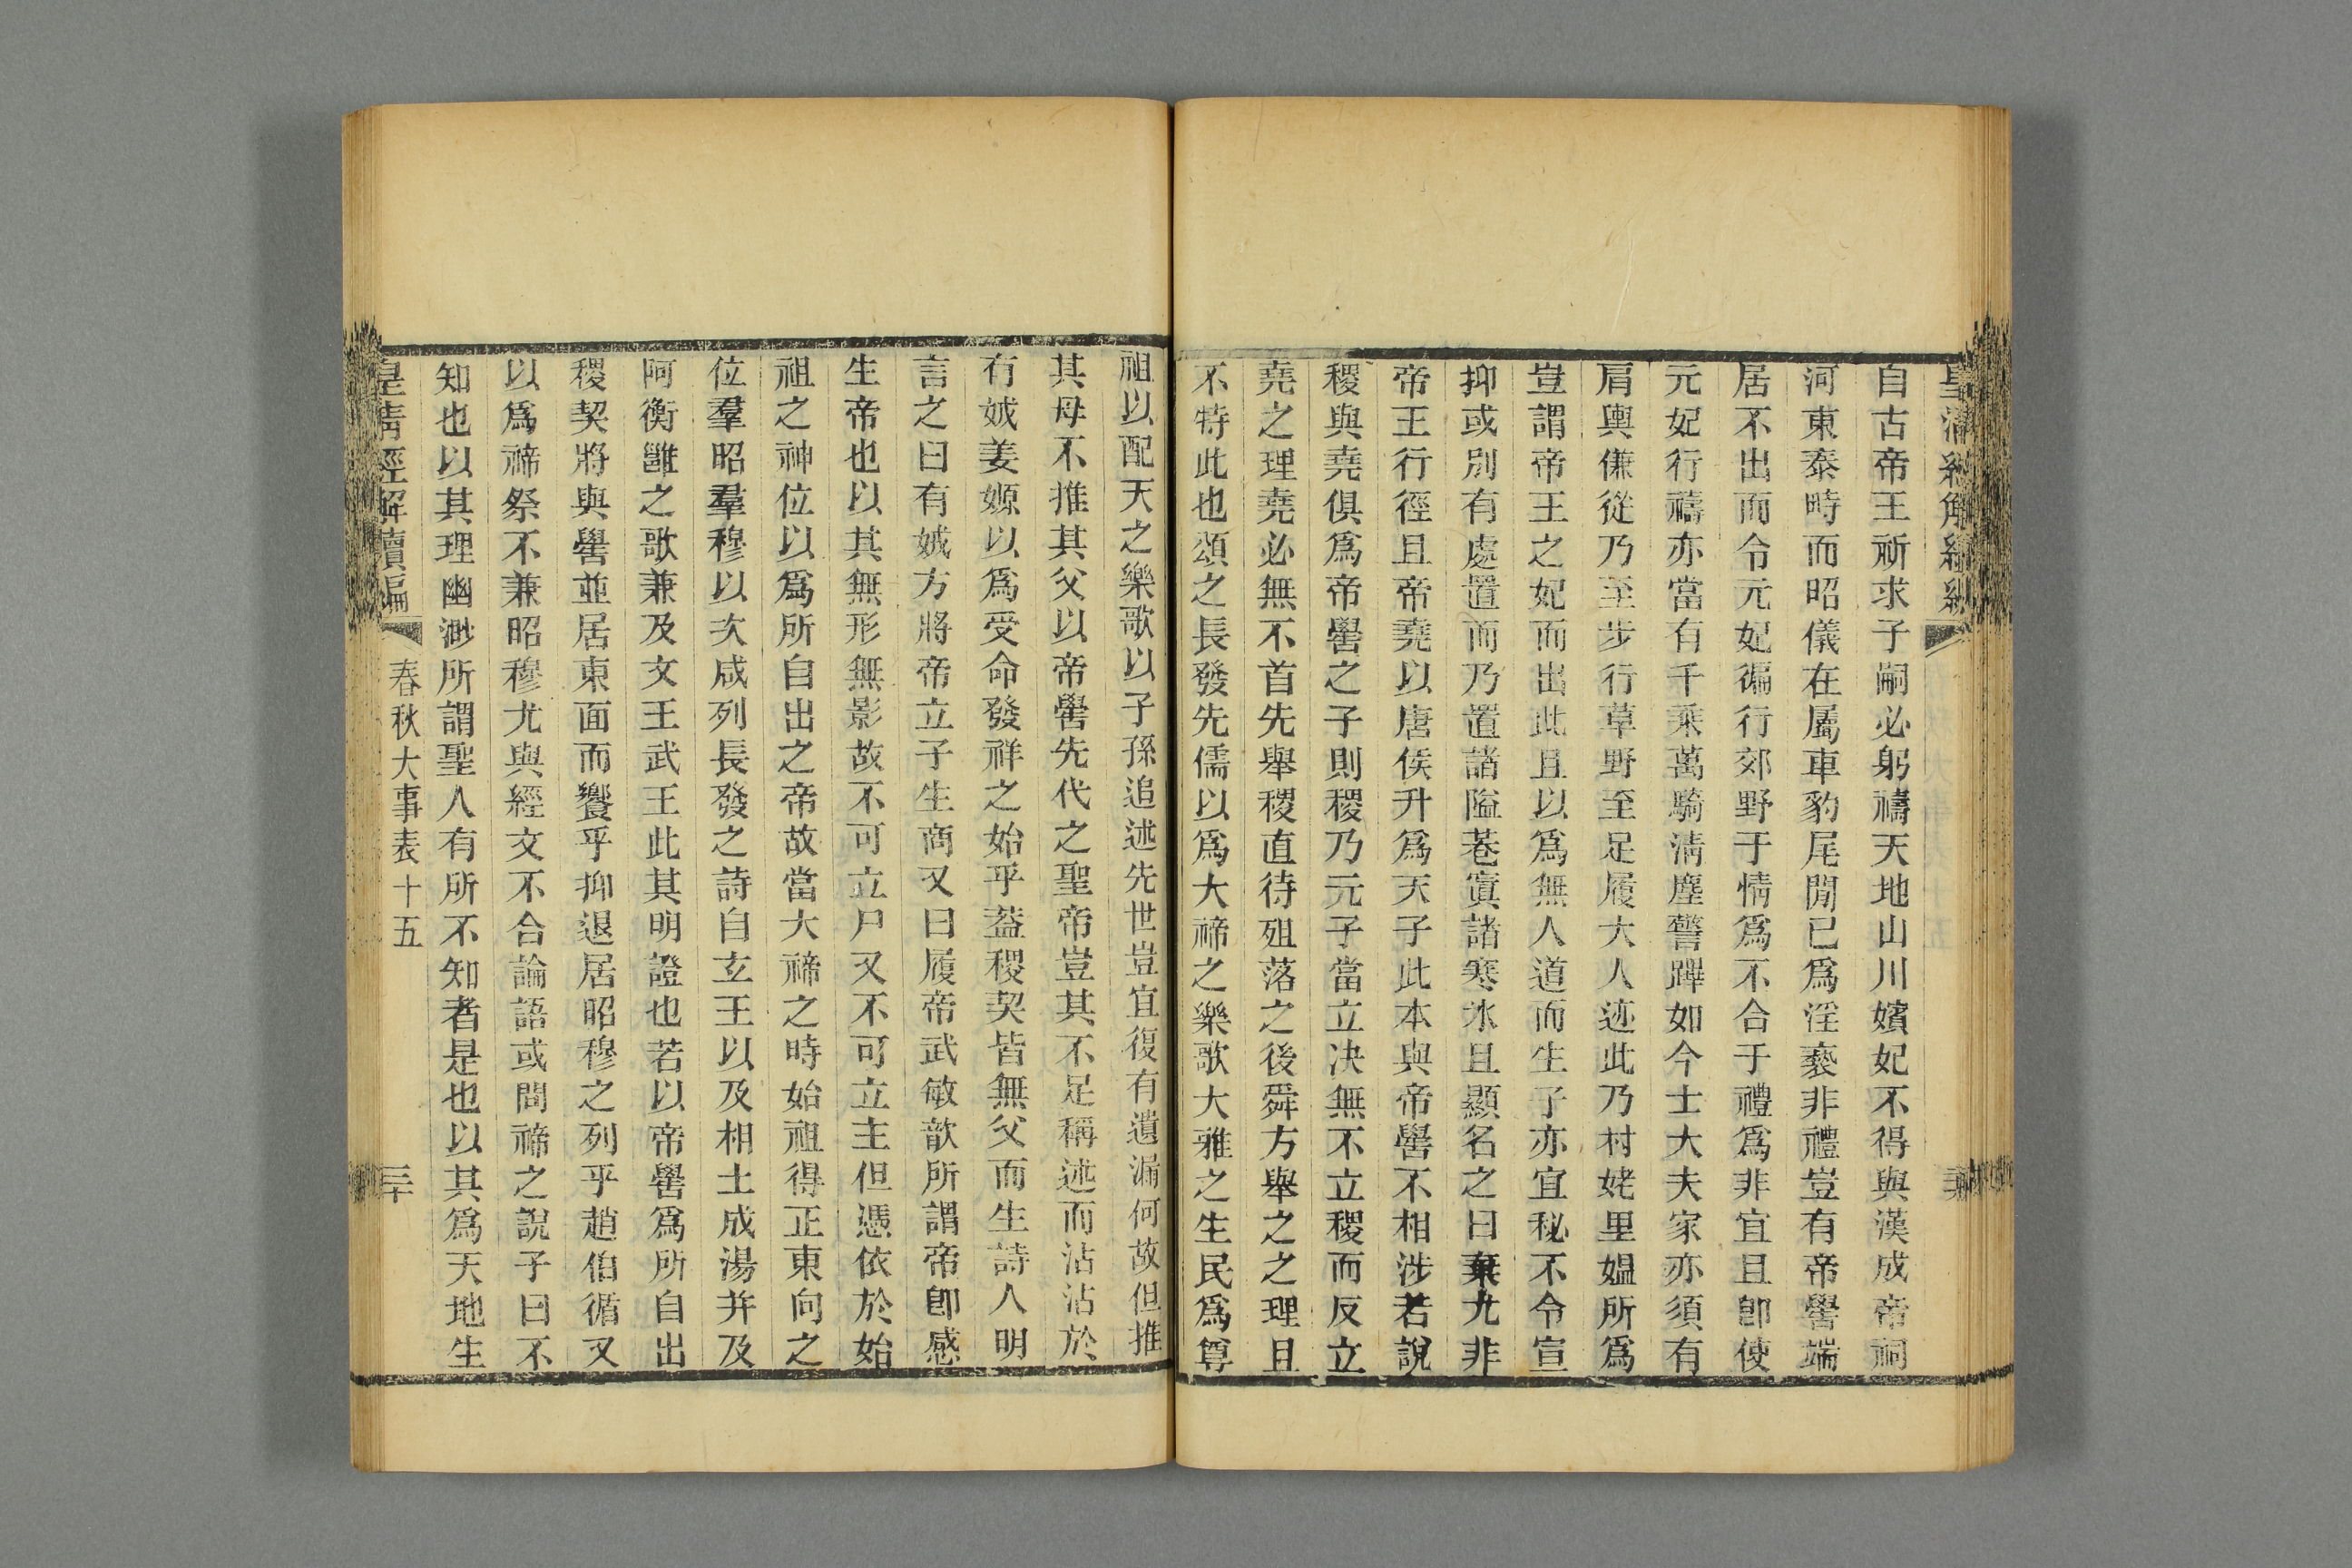 自古帝王祈求子嗣必躬禱天地山川嬪妃不得與漢成帝祠
河東泰畤而昭儀在屬車豹尾閒已爲淫褻非禮豈有帝嚳端
居不出而令元妃徧行郊野于情爲不合于禮爲非宜且卽使
元妃行禱亦當有千乘萬騎淸塵警蹕如今士大夫家亦須有
肩輿傔從乃至步行草野至足履大人迹此乃村姥里媼所爲
豈謂帝王之妃而出此且以爲無人道而生子亦宜秘不令宣
抑或別有處置而乃置諸隘巷寘諸寒冰且顯名之曰棄尤非
帝王行徑且帝堯以唐侯升爲天子此本與帝嚳不相涉若說
稷與堯俱爲帝嚳之子則稷乃元子當立决無不立稷而反立
堯之理堯必無不首先舉稷直待殂落之後舜方舉之之理且
不特此也頌之長發先儒以爲大禘之樂歌大雅之生民爲尊
祖以配天之樂歌以子孫追述先世豈宜復有遺漏何故但推
其母不推其父以帝嚳先代之聖帝豈其不足稱述而沾沾於
有娀姜嫄以爲受命發祥之始乎蓋稷契皆無父而生詩人明
言之曰有娀方將帝立子生商又曰履帝武敏歆所謂帝卽感
生帝也以其無形無影故不可立尸又不可立主但憑依於始
祖之神位以爲所自出之帝故當大禘之時始祖得正東向之
位羣昭羣穆以次咸列長發之詩自玄王以及相土成湯并及
阿衡雝之歌兼及文王武王此其明證也若以帝嚳爲所自出
稷契將與嚳並居東面而饗乎抑退居昭穆之列乎趙伯循又
以爲禘祭不兼昭穆尤與經文不合論語或問禘之說子曰不
知也以其理幽渺所謂聖人有所不知者是也以其爲天地生
皇淸經解續編 春秋大事表十五 三十